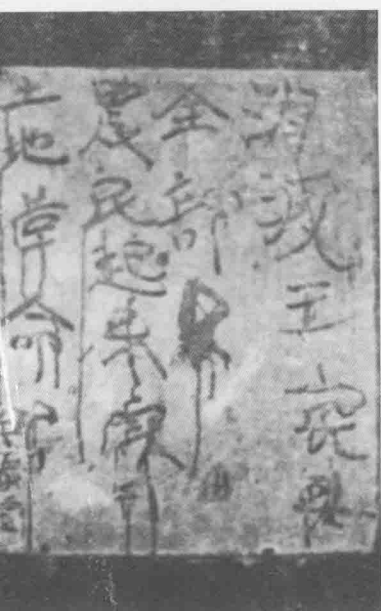 消滅王家烈
全部
農民起來實行
土地革命